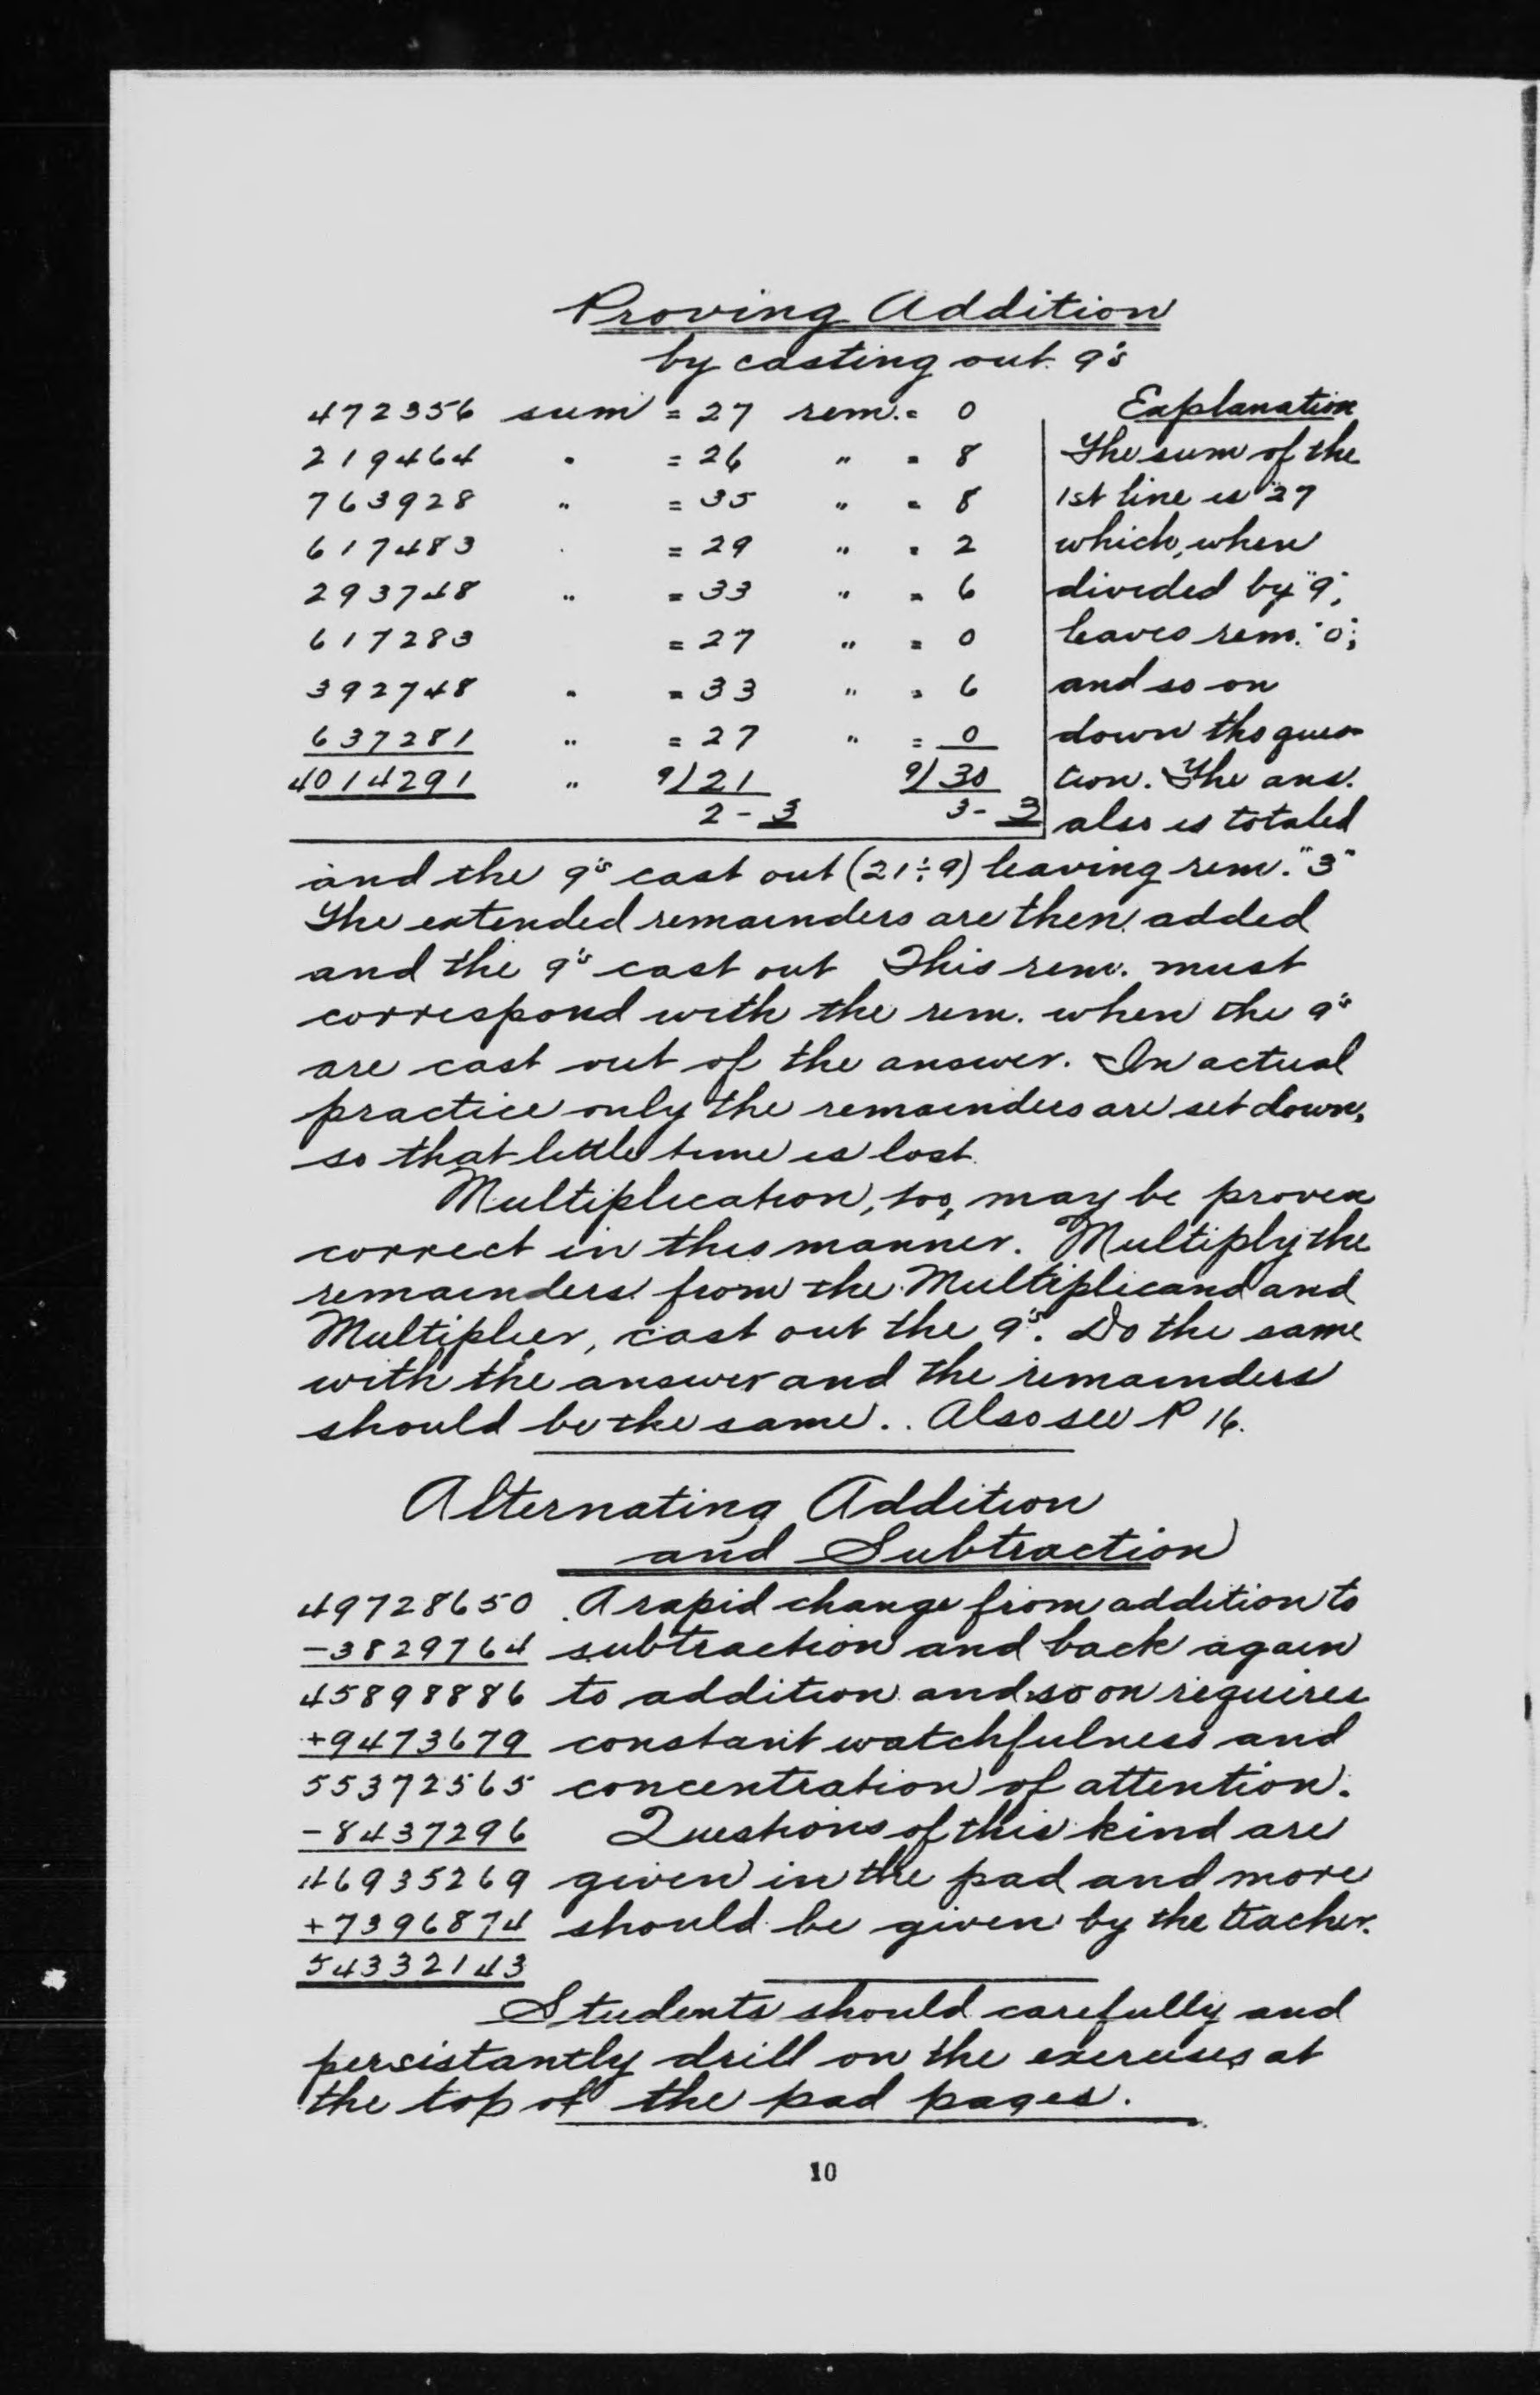 Proving Addition
by casting out 9's
472356 sum = 27 rem. = 0
219464 " = 26 " = 8
763928 " = 35 " = 8
617483 " = 29 " = 2
293748 " = 33 " = 6
617283 = 27 " = 0
392748 " = 33 " = 6
637281 " = 27 " = 0
4014291 " 9)21 9)30
2 - 3 3 - 3
Explanation
The sum of the
1st line is "27
which, when
divided by "9",
leaves rem. "0";
and so on
down the ques-
tion. The ans.
also is totaled
and the 9's cast out (21÷9) leaving rem. "3"
The extended remainders are then added
and the 9's cast out This rem. must
correspond with the rem. when the 9's
are cast out of the answer. In actual
practice only the remainders are set down,
so that little time is lost.
Multiplication, too, may be proven
correct in this manner. Multiply the
remainders from the Multiplicand and
Multiplier, cast out the 9's. Do the same
with the answer and the remainders
should be the same.. Also see P 16.
Alternating Addition
and Subtraction
49728650 A rapid change from addition to
-3829764 subtraction and back again
45898886 to addition and so on requires
+9473679 constant watchfulness and
55372565 concentration of attention.
-8437296 Questions of this kind are
46935269 given in the pad and more
+7396874 should be given by the teacher.
54332143
Students should carefully and
persistantly drill on the exercises at
the top of the pad pages.
10